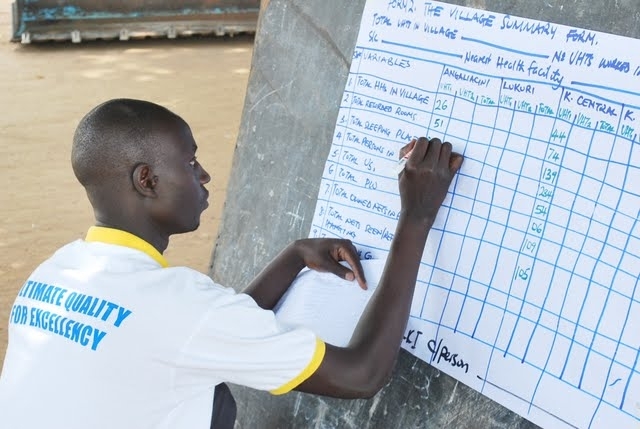 FORM 2. THE VILLAGE SUMMARY FORM.
TOTAL VHTs IN VILLAGE No VHTs WORKED IN
S/C Nearest Health facility
VARIABLES ANGALIACINI LUKURI K. CENTRAL K.
VHT1 VHT2 Total VHT1 VHT2 Total VHT1 VHT2 Total VHT1
1 TOTAL HHs IN VILLAGE 26 44
2 TOTAL RECORDED ROOMS 51 74
3 TOTAL SLEEPING PLAC 139
4 TOTAL PERSONS IN
5 TOTAL U5s 54
6 TOTAL P/W 06
7 TOTAL OWNED NETS 109
8 TOTAL NETS 105
9
C/Person
ULTIMATE QUALITY
FOR EXCELLENCY